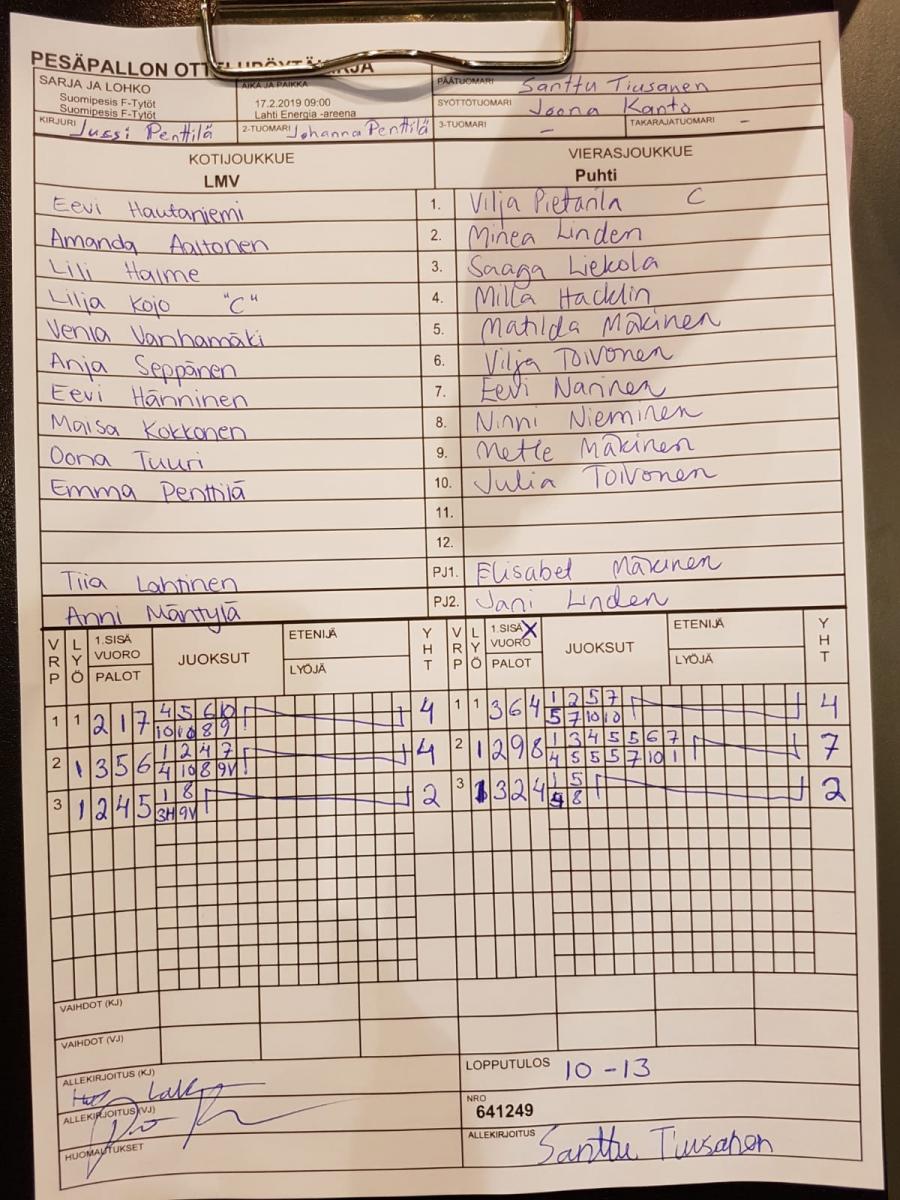 PESÄPALLON OTTELUPÖYTÄKIRJA
SARJA JA LOHKO
Suomipesis F-Tytöt
Suomipesis F-Tytöt
AIKA JA PAIKKA
17.2.2019 09:00
Lahti Energia -areena
PÄÄTUOMARI Santtu Tiusanen
SYÖTTÖTUOMARI Joona Kanto
KIRJURI Jussi Penttilä 2-TUOMARI Johanna Penttilä 3-TUOMARI - TAKARAJATUOMARI -
KOTIJOUKKUE VIERASJOUKKUE
LMV Puhti
Eevi Hautaniemi 1. Vilja Pietarila C
Amanda Aaltonen 2. Minea Linden
Lili Halme 3. Saaga Liekola
Lilja Kojo "C" 4. Milla Hacklin
Venla Vanhamäki 5. Matilda Mäkinen
Anja Seppänen 6. Vilja Toivonen
Eevi Hänninen 7. Eevi Narinen
Maisa Kokkonen 8. Ninni Nieminen
Oona Tuuri 9. Mette Mäkinen
Emma Penttilä 10. Julia Toivonen
11.
12.
Tiia Lahtinen PJ1. Elisabet Mäkinen
Anni Mäntylä PJ2. Jani Linden
VRP LYÖ 1.SISÄ VUORO PALOT JUOKSUT ETENIJÄ LYÖJÄ YHT VRP LYÖ 1.SISÄ X VUORO PALOT JUOKSUT ETENIJÄ LYÖJÄ YHT
1 1 2 1 7 4 5 6 10 4 1 1 3 6 4 1 2 5 7 4
10 10 8 9 5 7 10 10
2 1 3 5 6 1 2 4 7 4 2 1 2 9 8 1 3 4 5 5 6 7 7
4 10 8 9V 4 5 5 5 7 10 1
3 1 2 4 5 1 8 2 3 1 3 2 4 1 5 2
3H 9V 8
VAIHDOT (KJ)
VAIHDOT (VJ)
ALLEKIRJOITUS (KJ)
LOPPUTULOS 10-13
ALLEKIRJOITUS (VJ)
NRO
641249
HUOMAUTUKSET
ALLEKIRJOITUS Santtu Tiusanen